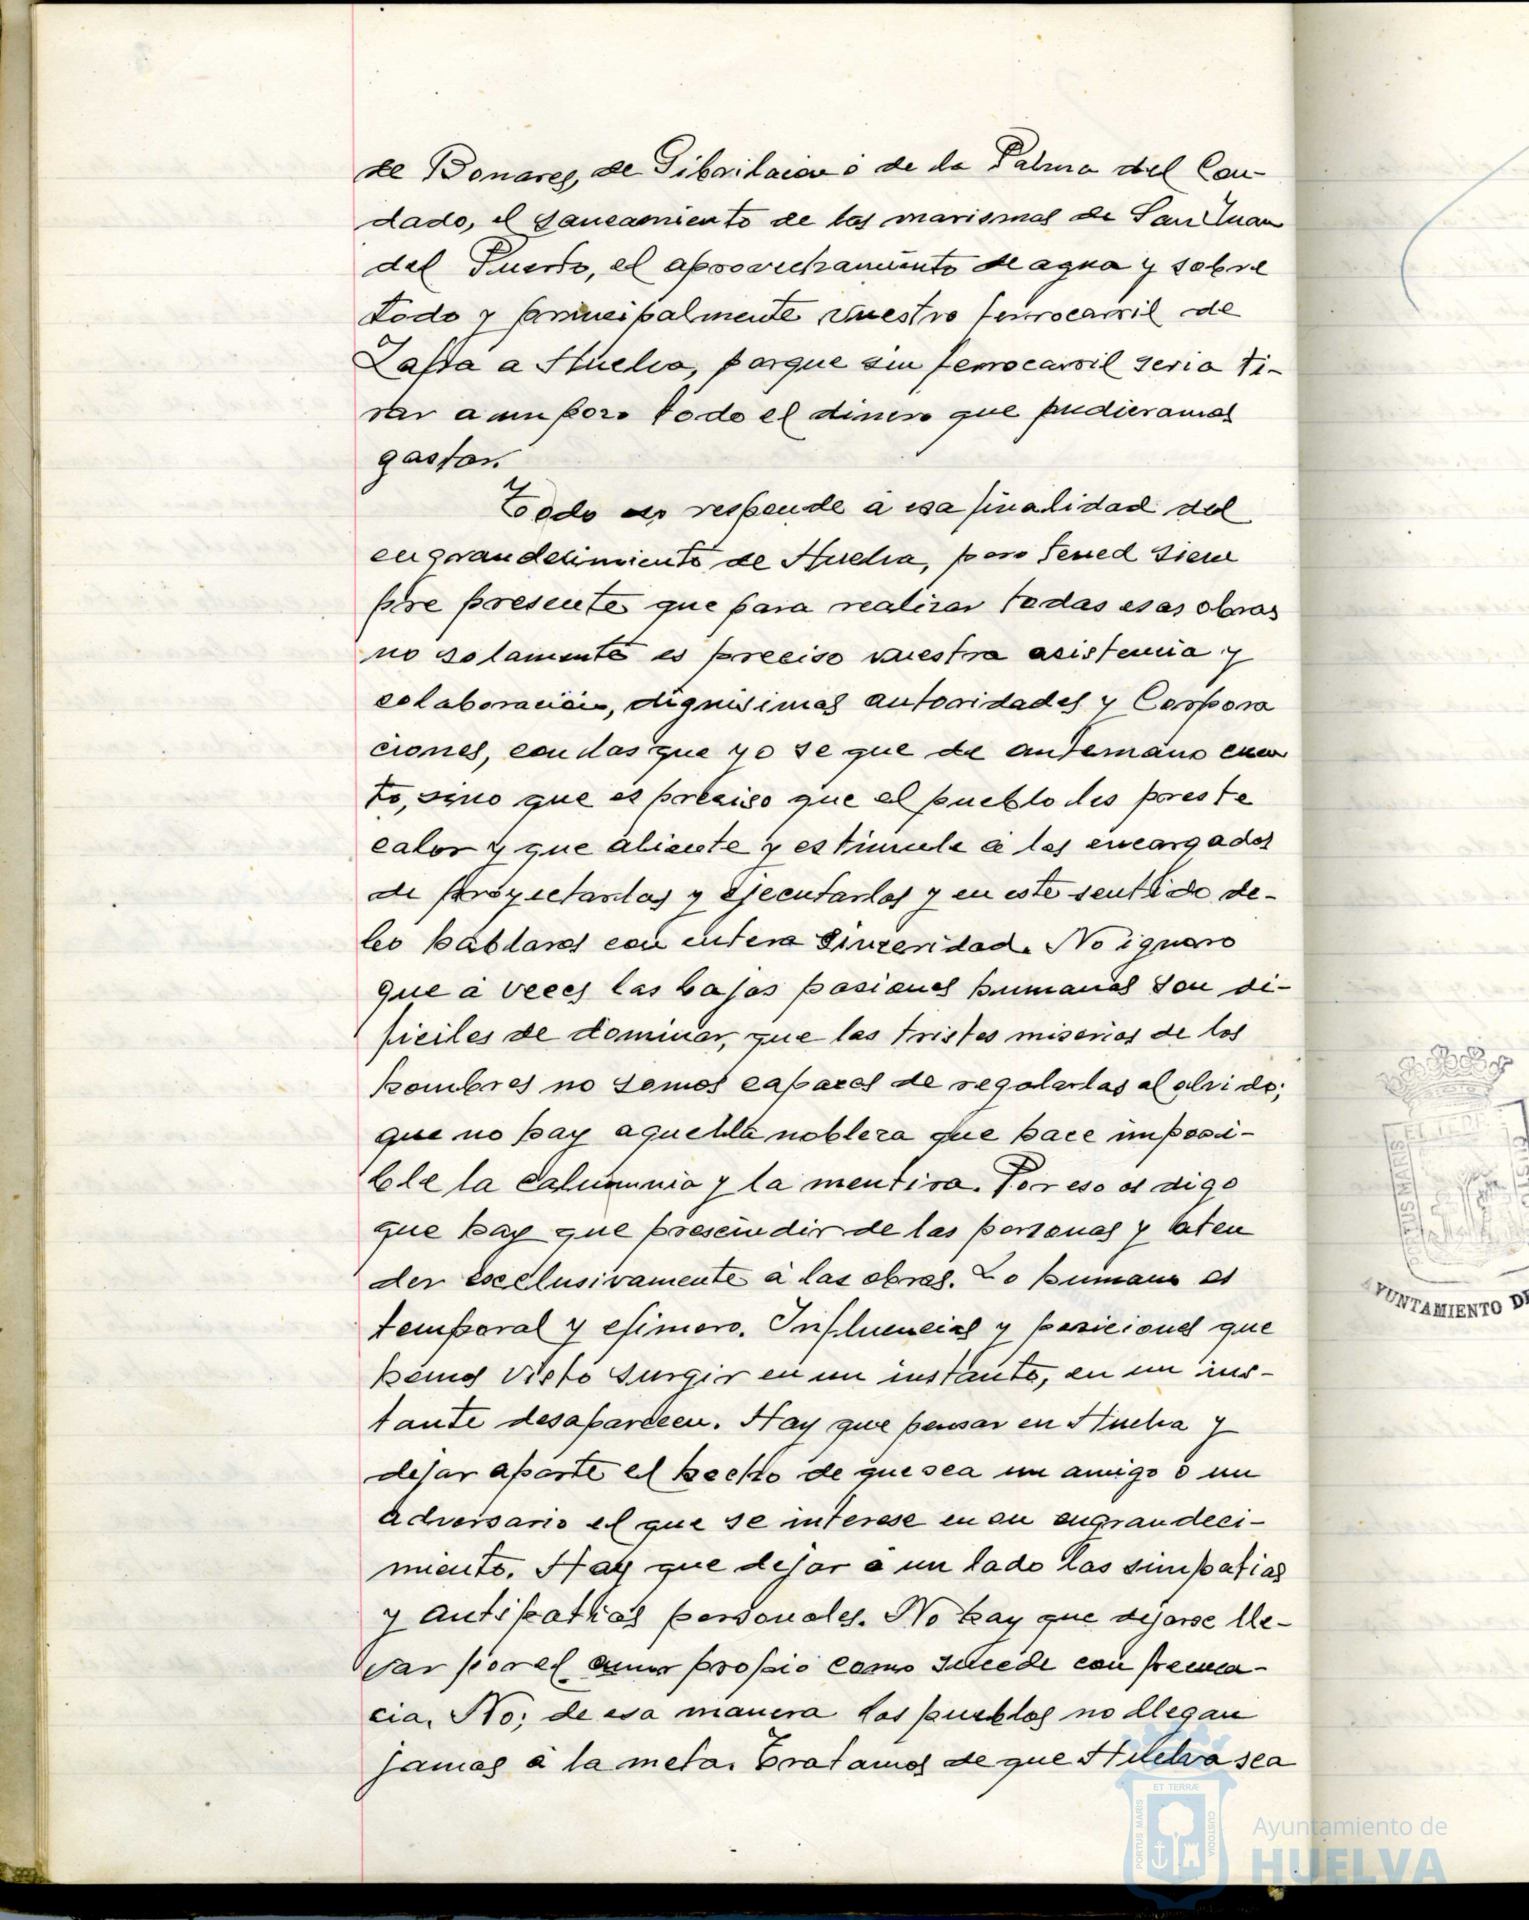 de Bonares, de Gibraleon ó de la Palma del Con-
dado, el saneamiento de las marismas de San Juan
del Puerto, el aprovechamiento de agua y sobre
todo y principalmente vuestro ferrocarril de
Zafra a Huelva, porque sin ferrocarril seria ti-
rar a un pozo todo el dinero que pudieramos
gastar.
Todo eso responde á esa finalidad del
engrandecimiento de Huelva, pero tened siem
pre presente que para realizar todas esas obras
no solamente es preciso vuestra asistencia y
colaboración, dignisimas autoridades y Corpora
ciones, con las que yo se que de antemano cuen
to, sino que es preciso que el pueblo les preste
calor y que aliente y estimule á los encargados
de proyectarlas y ejecutarlas y en este sentido de-
bo hablaros con entera sinceridad. No ignoro
que á veces las bajas pasiones humanas son di-
ficiles de dominar, que las tristes miserias de los
hombres no somos capaces de regalarlas al olvido;
que no hay aquella nobleza que hace imposi-
ble la calumnia y la mentira. Por eso os digo
que hay que prescindir de las personas y aten
der exclusivamente á las obras. Lo humano es
temporal y efimero. Influencias y posiciones que
hemos visto surgir en un instante, en un ins-
tante desaparecen. Hay que pensar en Huelva y
dejar aparte el hecho de que sea un amigo o un
adversario el que se interese en su engrandeci-
miento. Hay que dejar á un lado las simpatias
y antipatias personales. No hay que dejarse lle-
var por el amor propio como sucede con frecuen-
cia. No; de esa manera los pueblos no llegan
jamas á la meta. Tratamos de que Huelva sea
PORTUS MARIS
ET TERRÆ
CUSTODIA
AYUNTAMIENTO DE
PORTUS MARIS
ET TERRÆ
CUSTODIA
Ayuntamiento de
HUELVA